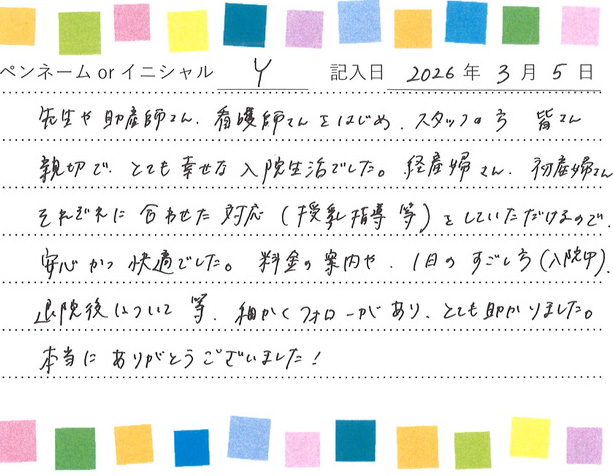 ペンネーム or イニシャル Y 記入日 2026 年 3 月 5 日
先生や助産師さん、看護師さんをはじめ、スタッフの方 皆さん
親切で、とても幸せな入院生活でした。経産婦さん、初産婦さん
それぞれに合わせた対応(授乳指導等)をしていただけるので、
安心かつ快適でした。料金の案内や、1日のすごし方(入院中)、
退院後について等、細かくフォローがあり、とても助かりました。
本当にありがとうございました!